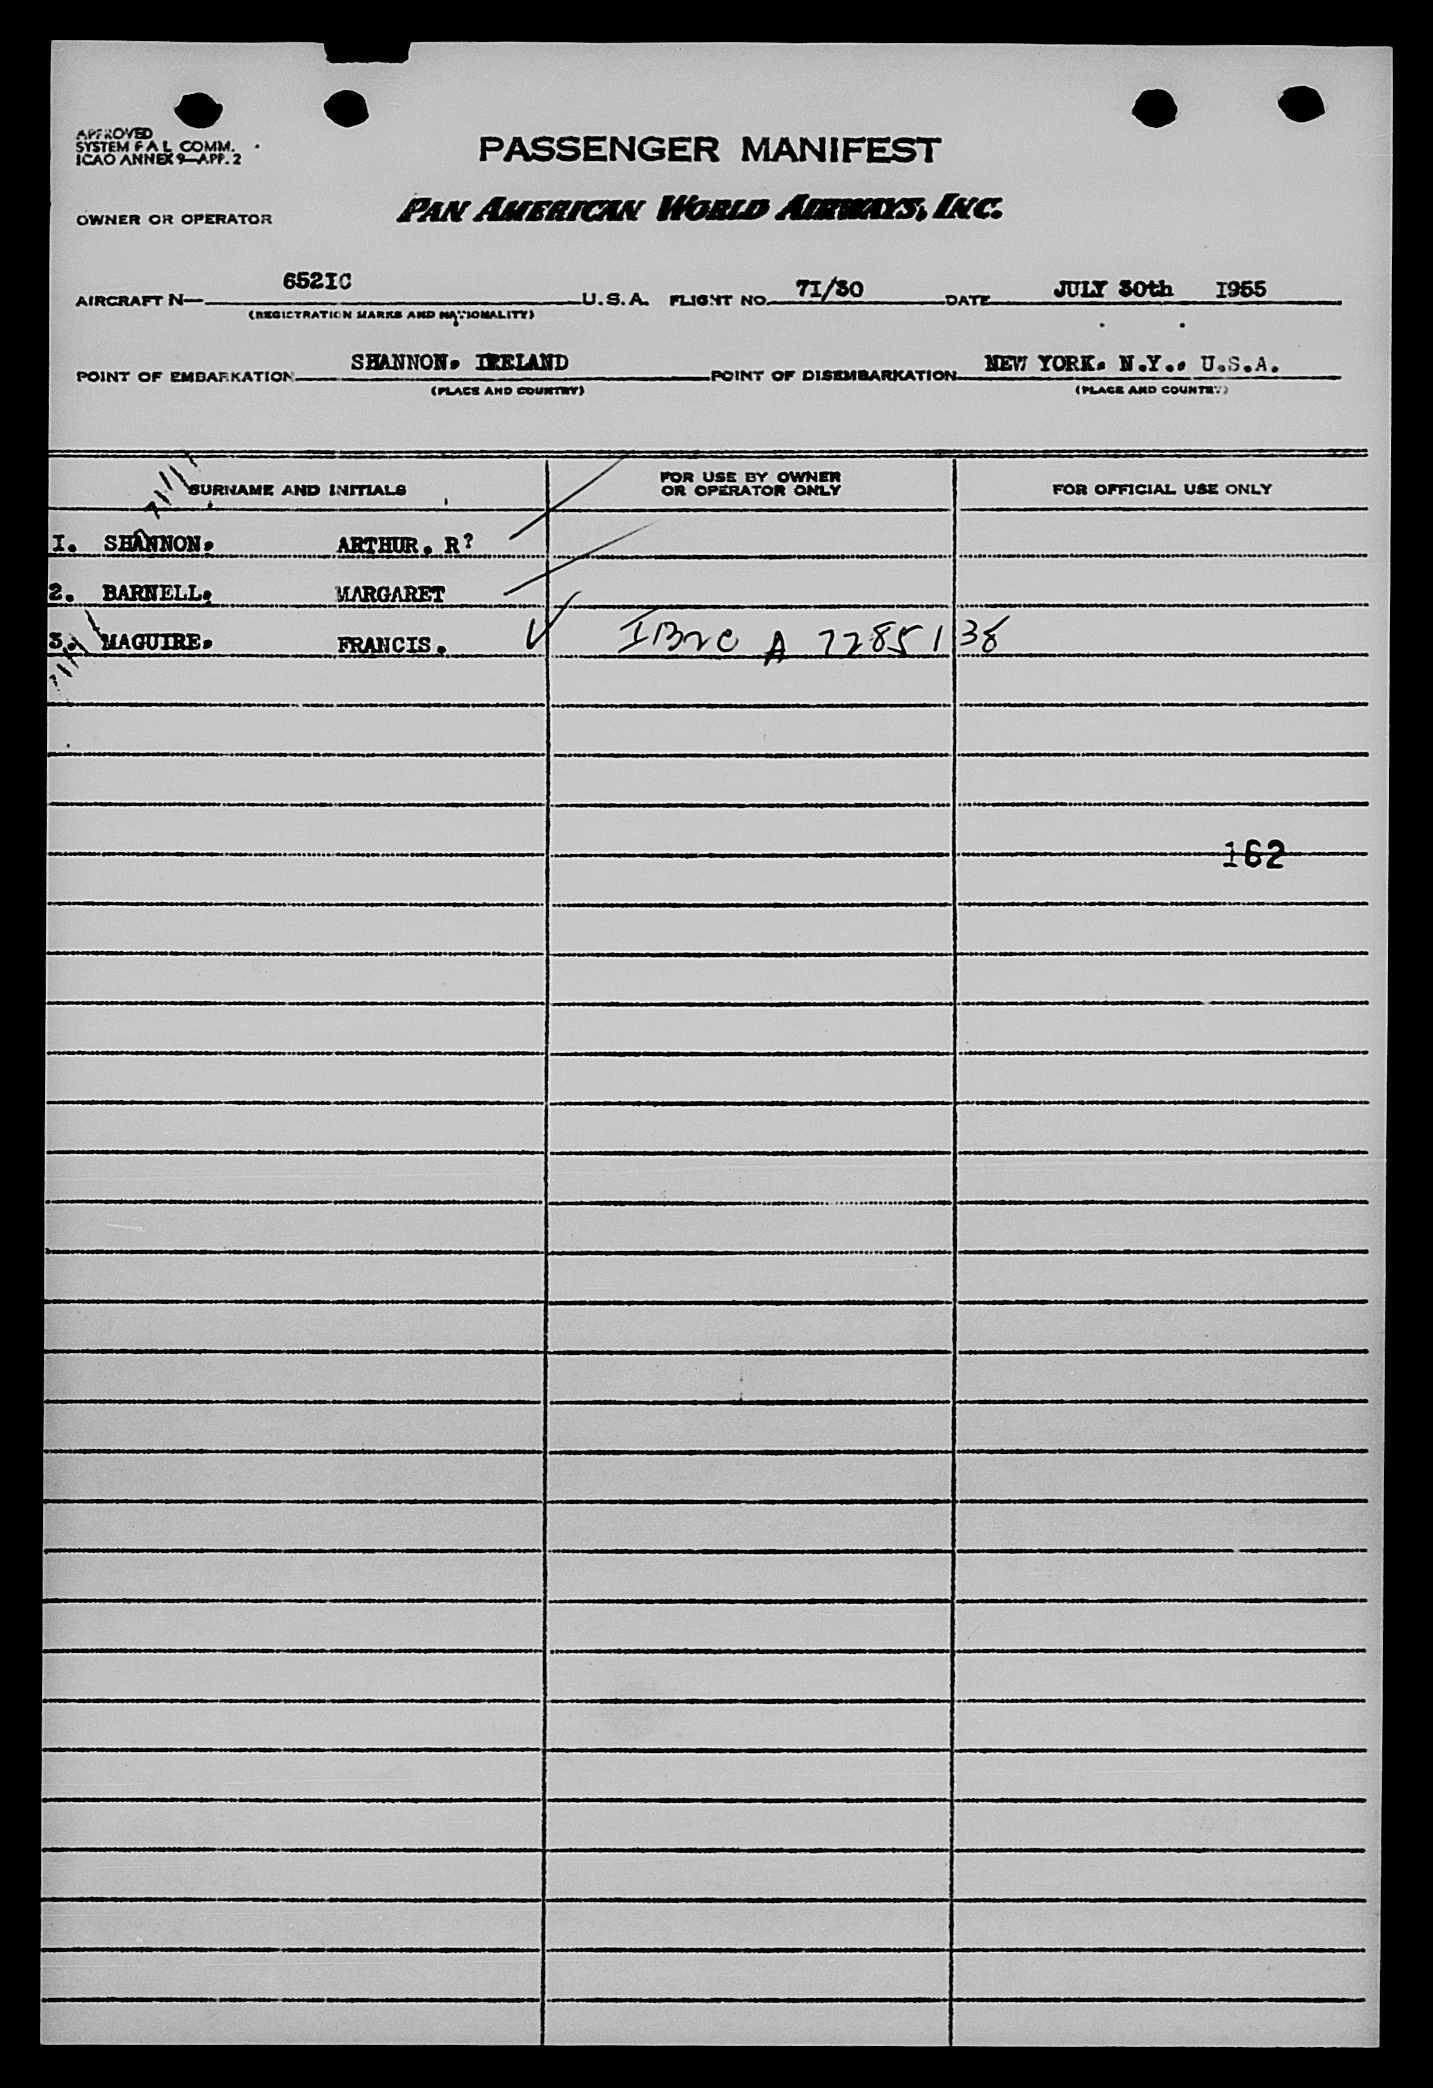 APPROVED
SYSTEM F A L COMM.
ICAO ANNEX 9—APP. 2
PASSENGER MANIFEST
OWNER OR OPERATOR PAN AMERICAN WORLD AIRWAYS, INC.
AIRCRAFT N— 652IC U.S.A. FLIGHT NO. 7I/30 DATE JULY 30th I955
(REGISTRATION MARKS AND NATIONALITY)
POINT OF EMBARKATION SHANNON, IRELAND POINT OF DISEMBARKATION NEW YORK, N.Y., U.S.A.
(PLACE AND COUNTRY) (PLACE AND COUNTRY)
SURNAME AND INITIALS FOR USE BY OWNER OR OPERATOR ONLY FOR OFFICIAL USE ONLY
I. SHANNON, ARTHUR. R?
2. BARNELL, MARGARET
3. MAGUIRE, FRANCIS. IB2C A 7285138
162